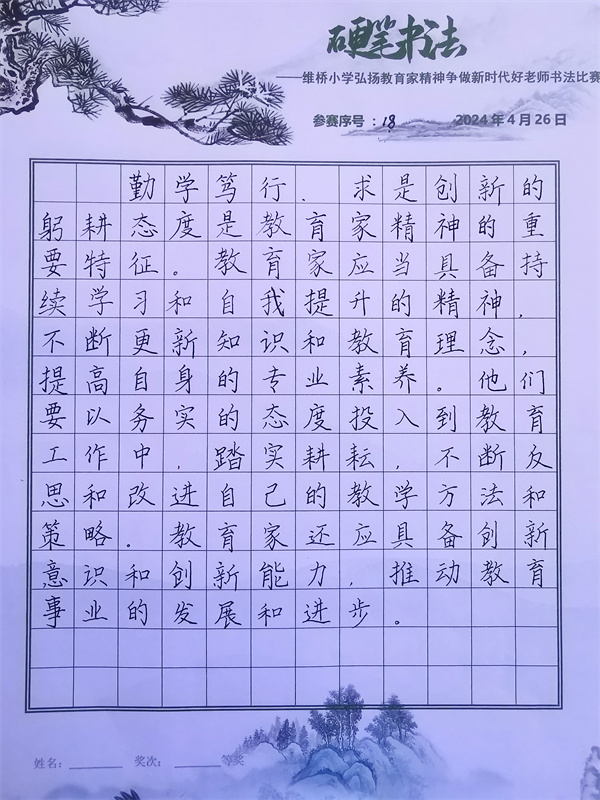 硬笔书法
——维桥小学弘扬教育家精神争做新时代好老师书法比赛
参赛序号：18 2024年4月26日
勤学笃行、求是创新的
躬耕态度是教育家精神的重
要特征。教育家应当具备持
续学习和自我提升的精神，
不断更新知识和教育理念，
提高自身的专业素养。他们
要以务实的态度投入到教育
工作中，踏实耕耘，不断反
思和改进自己的教学方法和
策略。教育家还应具备创新
意识和创新能力，推动教育
事业的发展和进步。
姓名：______ 奖次：______等奖